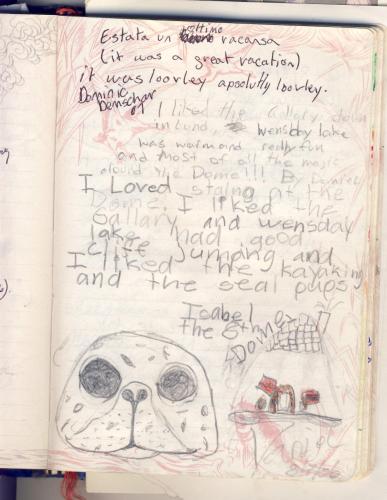 Estata un ottimo vacansa
(it was a great vacation)
it was loovley apsolutly loovley.
Dominic
I liked the Gallery down
in Lund, wensday lake
was warm and really fun
and most of all the magic
around the Dome!!! By
I Loved staing at the
Dome. I liked the
Gallary and wensday
lake had good
cliff jumping and
I liked the kayaking
and the seal pups
Isabel
the 8th
Dome